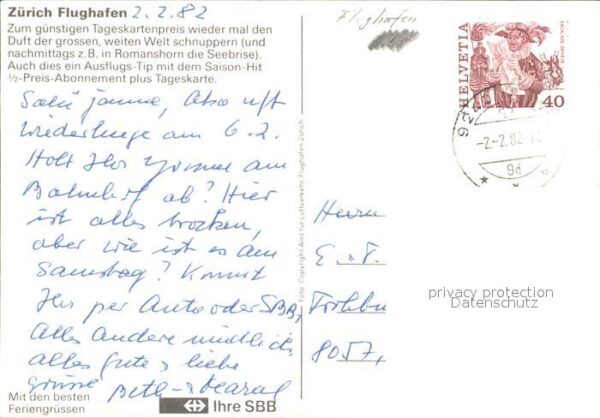 Zürich Flughafen 2.2.82
Zum günstigen Tageskartenpreis wieder mal den
Duft der grossen, weiten Welt schnuppern (und
nachmittags z.B. in Romanshorn die Seebrise).
Auch dies ein Ausflugs-Tip mit dem Saison-Hit
½-Preis-Abonnement plus Tageskarte.
Flughafen
HELVETIA
ESCALADE GENÈVE
40
-2.-2.82
am 6.2.
Holt Ihr Yvonne am
Bahnhof ab? Hier
ist alles trocken,
aber wie ist es am
Samstag? Kommt
Ihr per Auto oder SBB,
Alles Andere mündlich
alles Gute & liebe
Grüsse
Mit den besten
Feriengrüssen
Ihre SBB
Foto: Copyright Amt für Luftverkehr, Flughafen Zürich
Herrn
8057
privacy protection
Datenschutz